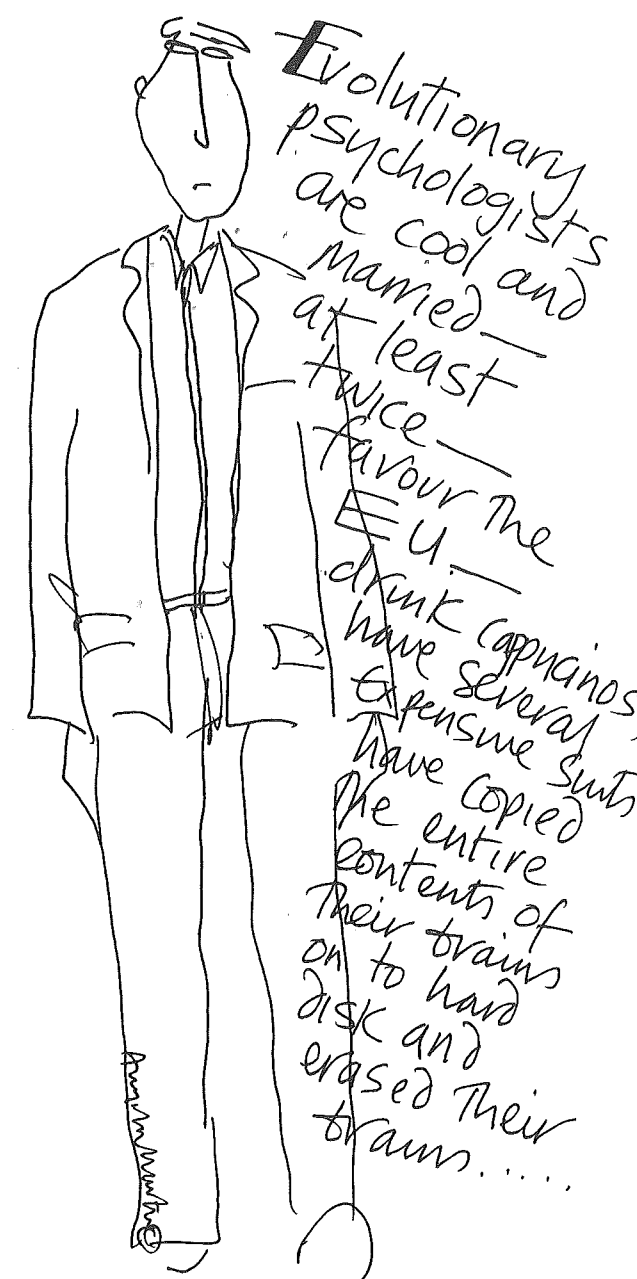 Evolutionary
psychologists
are cool and
married—
at least
twice—
favour the
EU—
drink cappucinos,
have several
expensive suits
have copied
the entire
contents of
their brains
on to hard
disk and
erased their
brains.....